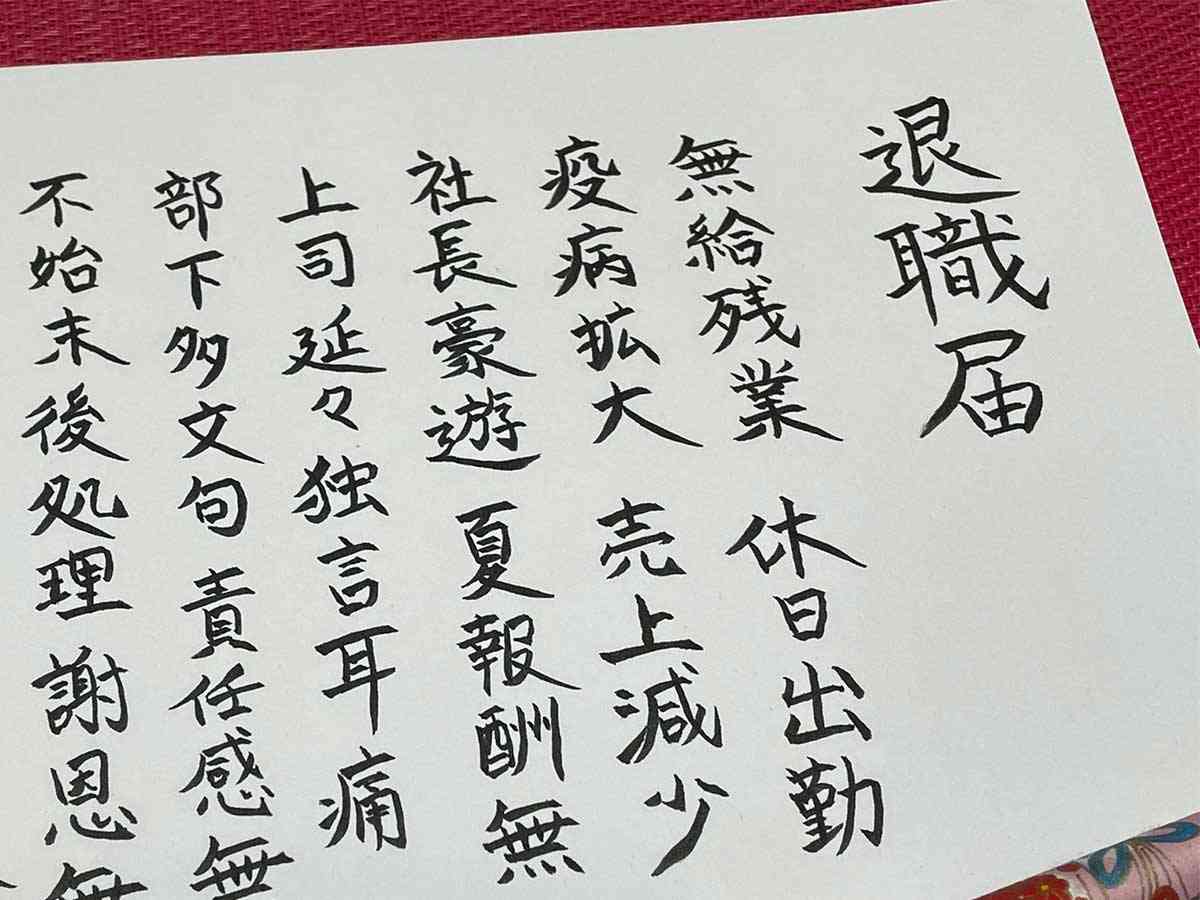 退職届
無給残業 休日出勤
疫病拡大 売上減少
社長豪遊 夏報酬無
上司延々独言耳痛
部下多文句責任感無
不始末後処理謝恩無